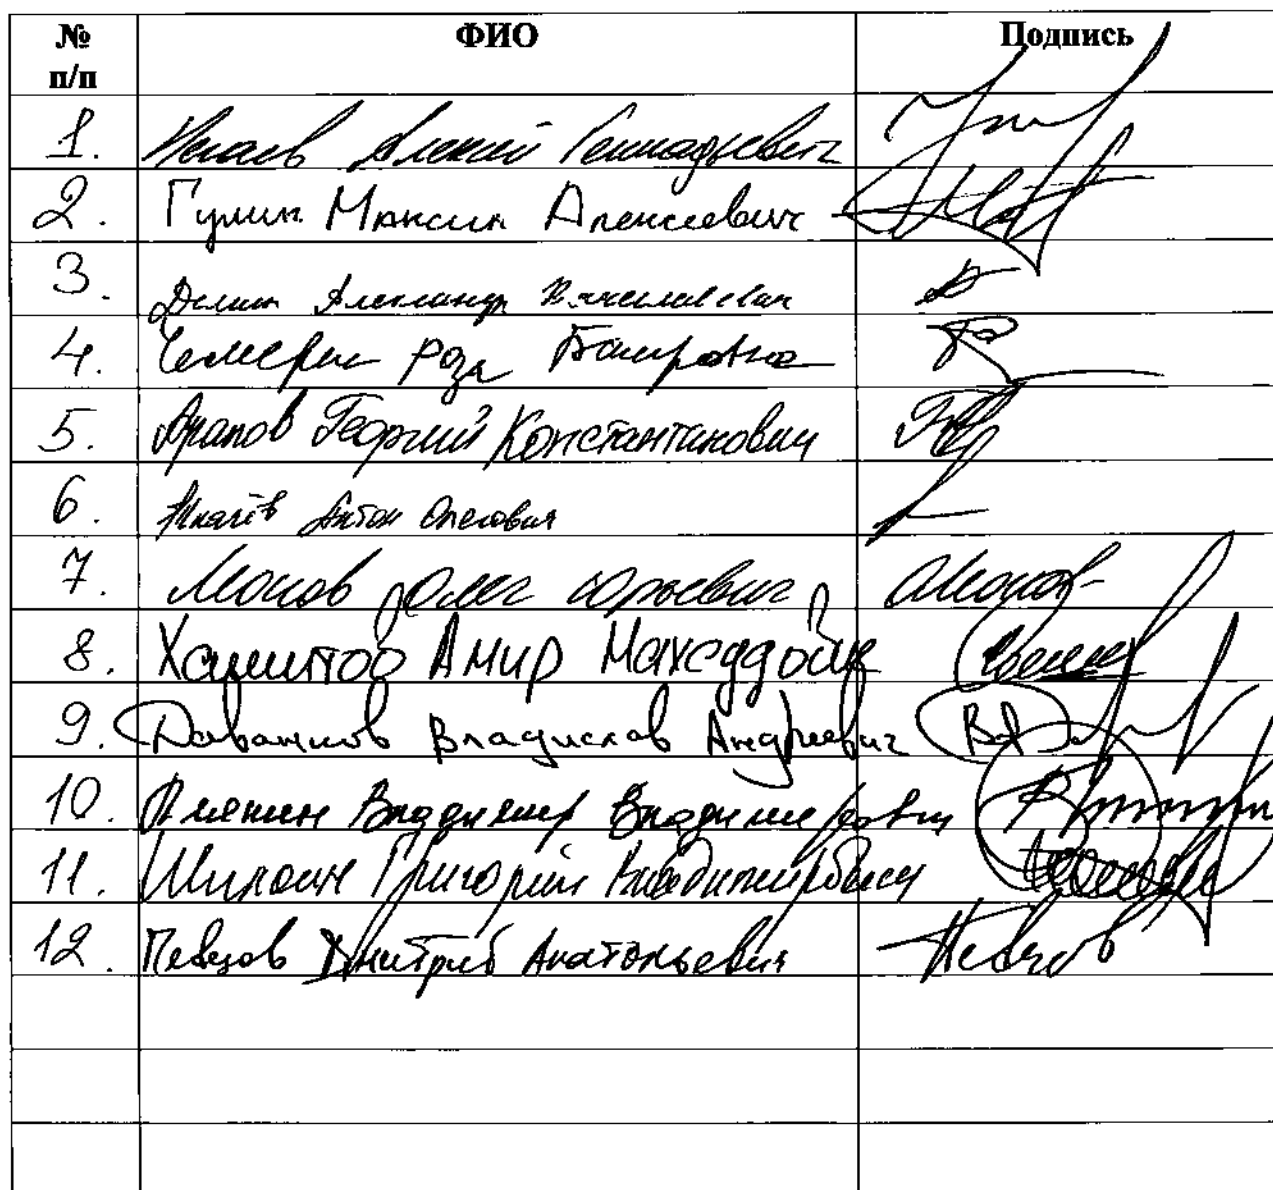 № п/п ФИО Подпись
1. Нечаев Алексей Геннадьевич
2. Гулин Максим Алексеевич
3. Демин Александр Вячеславович
4. Чемерис Роза Баировна
5. Арапов Георгий Константинович
6. Ткачёв Антон Олегович
7. Леонов Олег Юрьевич Леонов
8. Хамитов Амир Махсудович
9. Даванков Владислав Андреевич
10. Плякин Владимир Владимирович
11. Шилкин Григорий Владимирович
12. Певцов Дмитрий Анатольевич Певцов